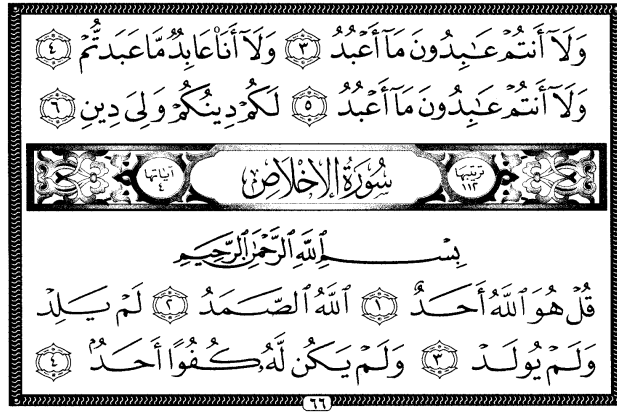 وَلَآ أَنتُمْ عَٰبِدُونَ مَآ أَعْبُدُ ٣ وَلَآ أَنَا۠ عَابِدٌ مَّا عَبَدتُّمْ ٤
وَلَآ أَنتُمْ عَٰبِدُونَ مَآ أَعْبُدُ ٥ لَكُمْ دِينُكُمْ وَلِىَ دِينِ ٦
ترتيبها ١١٣
سُورَةُ الإِخْلَاصِ
آياتها ٤
بِسْمِ ٱللَّهِ ٱلرَّحْمَٰنِ ٱلرَّحِيمِ
قُلْ هُوَ ٱللَّهُ أَحَدٌ ١ ٱللَّهُ ٱلصَّمَدُ ٢ لَمْ يَلِدْ
وَلَمْ يُولَدْ ٣ وَلَمْ يَكُن لَّهُۥ كُفُوًا أَحَدٌۢ ٤
٦٦